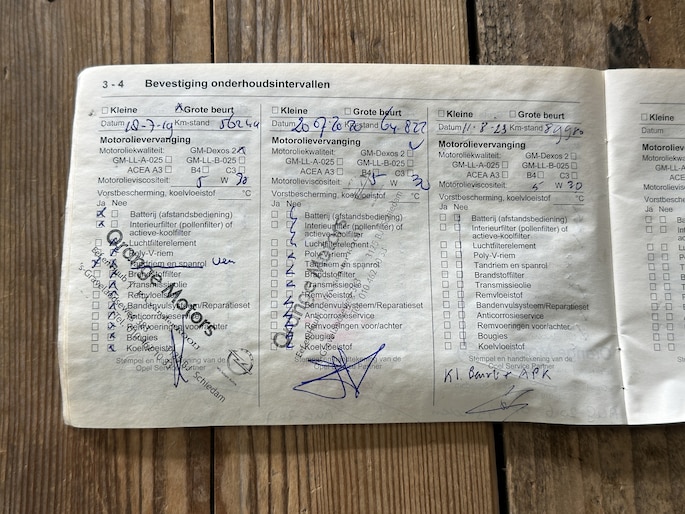 3 - 4 Bevestiging onderhoudsintervallen
Kleine Grote beurt
Datum 18-7-19 Km-stand
Motorolievervanging
Motoroliekwaliteit: GM-Dexos 2
GM-LL-A-025 GM-LL-B-025
ACEA A3 B4 C3
Motorolieviscositeit: 5 W 30
Vorstbescherming, koelvloeistof °C
Ja Nee
Batterij (afstandsbediening)
Interieurfilter (pollenfilter) of
actieve-koolfilter
Luchtfilterelement
Poly-V-riem
Tandriem en spanrol
Brandstoffilter
Transmissieolie
Remvloeistof
Bandenvulsysteem/Reparatieset
Anticorrosieservice
Remvoeringen voor/achter
Bougies
Koelvloeistof
Stempel en handtekening van de
Opel Service Partner
Orange Motors
Schiedam
Kleine Grote beurt
Datum 20 07 2020 Km-stand 64.822
Motorolievervanging
Motoroliekwaliteit: GM-Dexos 2
GM-LL-A-025 GM-LL-B-025
ACEA A3 B4 C3
Motorolieviscositeit: 5 W 30
Vorstbescherming, koelvloeistof °C
Ja Nee
Batterij (afstandsbediening)
Interieurfilter (pollenfilter) of
actieve-koolfilter
Luchtfilterelement
Poly-V-riem
Tandriem en spanrol
Brandstoffilter
Transmissieolie
Remvloeistof
Bandenvulsysteem/Reparatieset
Anticorrosieservice
Remvoeringen voor/achter
Bougies
Koelvloeistof
Stempel en handtekening van de
Opel Service Partner
Kleine Grote beurt
Datum 11-8-23 Km-stand
Motorolievervanging
Motoroliekwaliteit: GM-Dexos 2
GM-LL-A-025 GM-LL-B-025
ACEA A3 B4 C3
Motorolieviscositeit: 5 W 30
Vorstbescherming, koelvloeistof °C
Ja Nee
Batterij (afstandsbediening)
Interieurfilter (pollenfilter) of
actieve-koolfilter
Luchtfilterelement
Poly-V-riem
Tandriem en spanrol
Brandstoffilter
Transmissieolie
Remvloeistof
Bandenvulsysteem/Reparatieset
Anticorrosieservice
Remvoeringen voor/achter
Bougies
Koelvloeistof
Stempel en handtekening van de
Opel Service Partner
Kl Beurt + APK
Kleine
Datum
Motorolievervan
Motoroliekwalite
GM-LL-A
ACEA
Motorolieviscosi
Vorstbescherming
Ja Nee